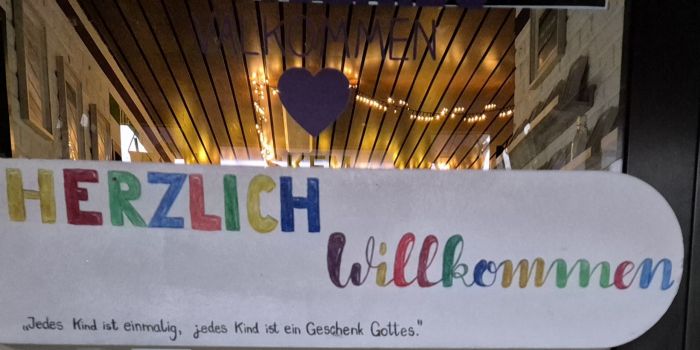 WILLKOMMEN
HERZLICH
Willkommen
„Jedes Kind ist einmalig, jedes Kind ist ein Geschenk Gottes."